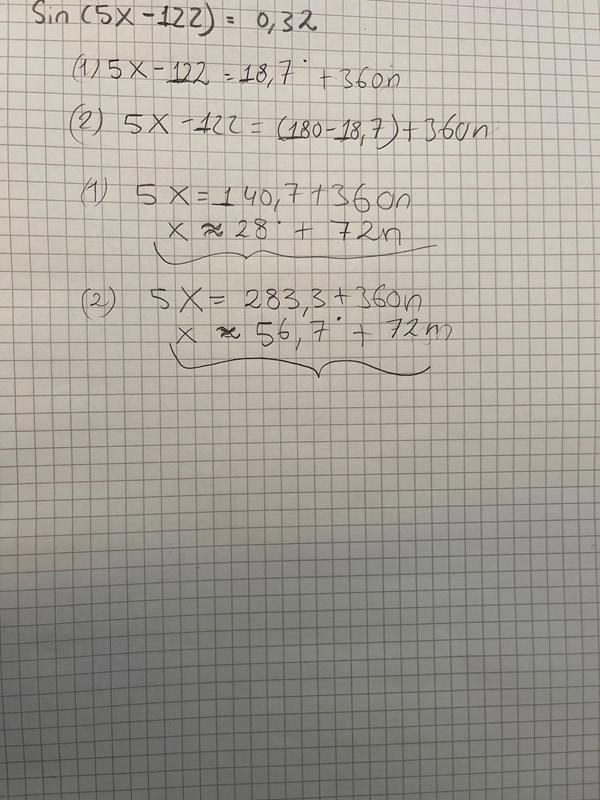 Sin (5x-122) = 0,32
(1) 5x-122 = 18,7° + 360n
(2) 5x-122 = (180-18,7)+360n
(1) 5x = 140,7+360n
x ≈ 28° + 72n
(2) 5x = 283,3+360n
x ≈ 56,7° + 72n